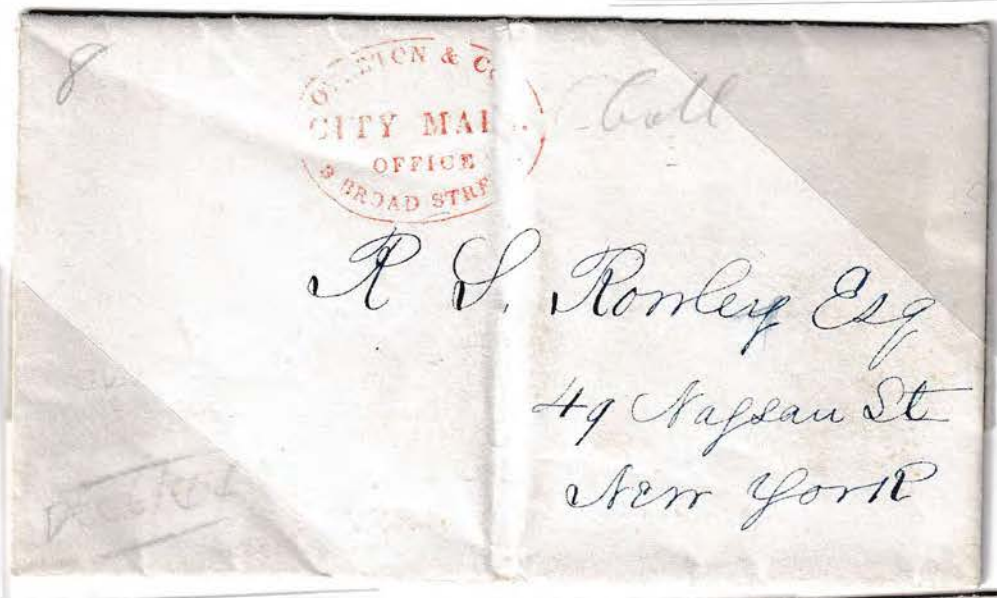 8
& C
CITY MAI
OFFICE
BROAD STRE
R S. Rowley Esq
49 Nassau St
New York